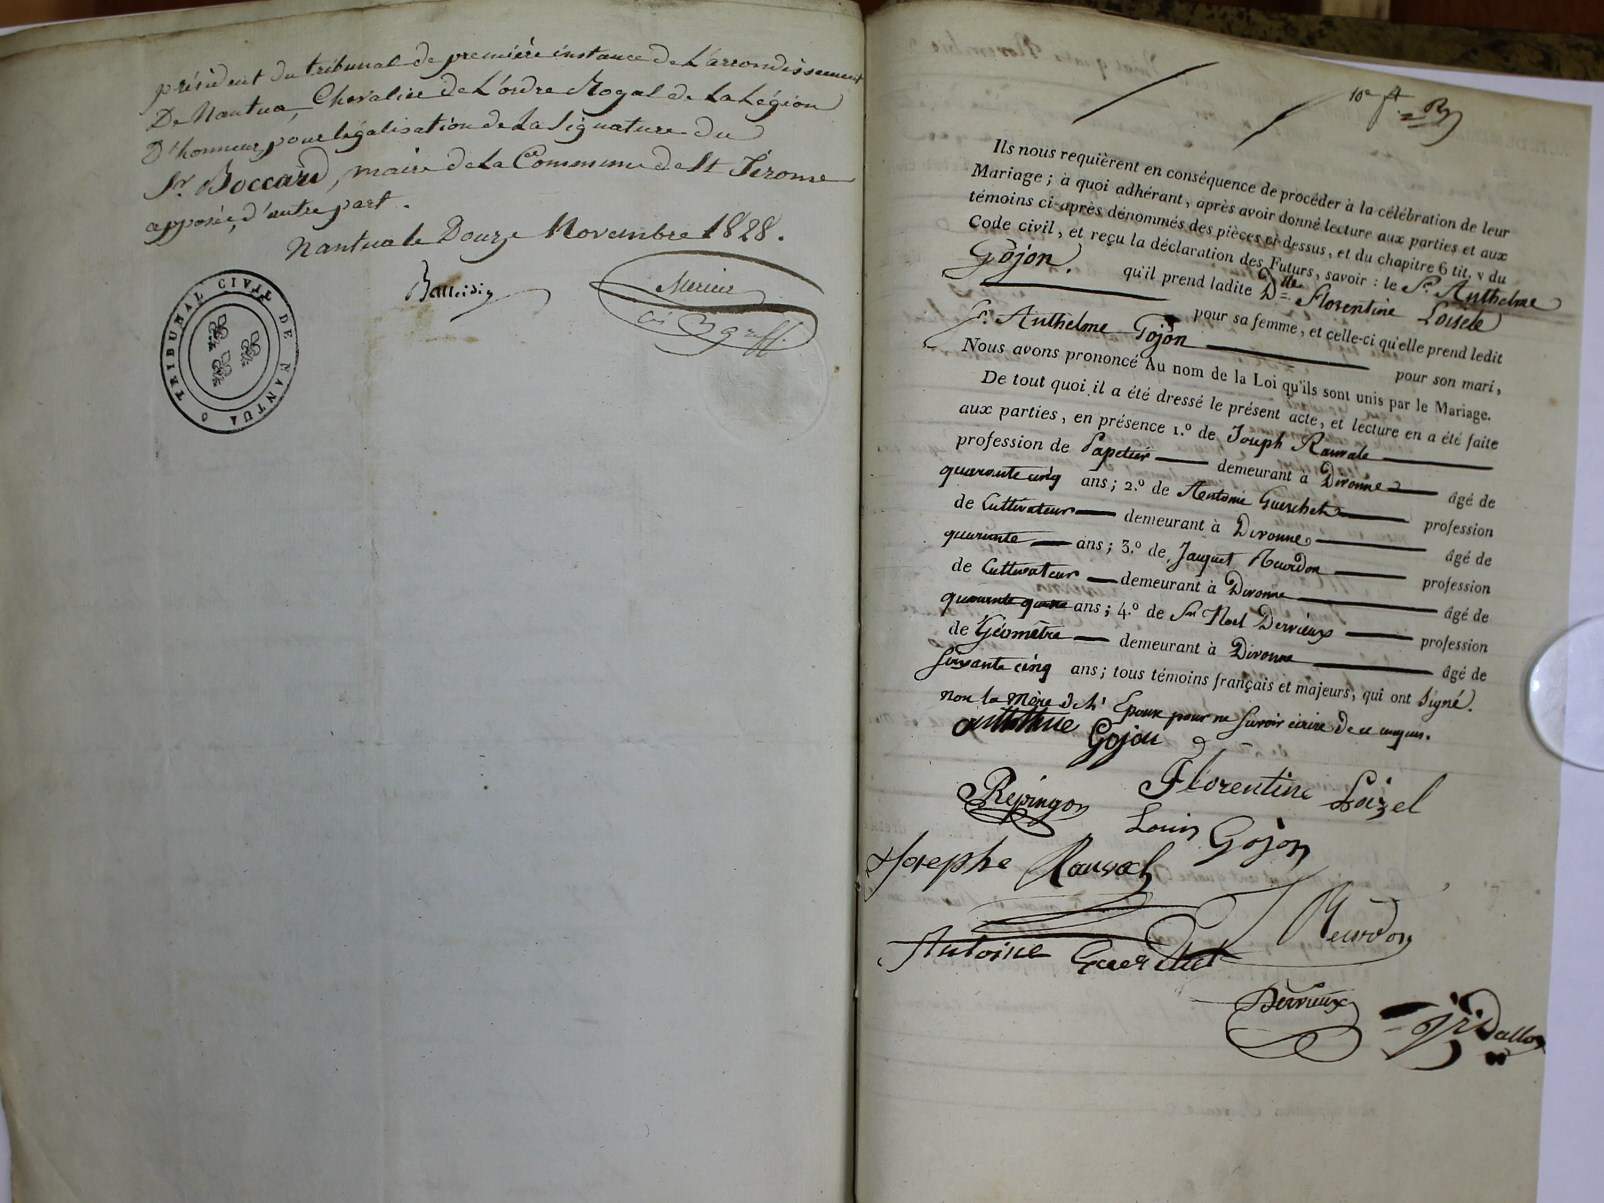 président du tribunal de première instance de L'arrondissement
De Nantua, Chevalier de L'ordre Royal de La Légion
D'honneur, pour légalisation de La Signature du
Sr Boccard, maire de La Commune de St Jérome
apposée, d'autre part.
Nantua le Douze Novembre 1828.
Mercier
TRIBUNAL CIVIL DE NANTUA
10e ft
Ils nous requièrent en conséquence de procéder à la célébration de leur
Mariage ; à quoi adhérant, après avoir donné lecture aux parties et aux
témoins ci-après dénommés des pièces ci-dessus, et du chapitre 6 tit. v du
Code civil, et reçu la déclaration des Futurs, savoir : le Sr. Anthelme
Gojon. qu'il prend ladite Dlle Florentine Loisele
pour sa femme, et celle-ci qu'elle prend ledit
Sr. Anthelme Gojon pour son mari,
Nous avons prononcé Au nom de la Loi qu'ils sont unis par le Mariage.
De tout quoi il a été dressé le présent acte, et lecture en a été faite
aux parties, en présence 1.º de Joseph Rauvale
profession de Papetier demeurant à Divonne âgé de
quarante cinq ans ; 2.º de Antoine Guerchet profession
de Cultivateur demeurant à Divonne âgé de
quarante ans ; 3.º de Jaquet Reurdon profession
de Cultivateur demeurant à Divonne âgé de
quarante quatre ans ; 4.º de Sr Noel Dervieux profession
de Géomètre demeurant à Divonne âgé de
soixante cinq ans ; tous témoins français et majeurs, qui ont Signé.
non la Mère de l' Epoux pour ne Savoir écrire de ce enquis.
anthelme Gojon
Florentine Loizel
Répingon
Louis Gojon
Josephe Rauvach
Reurdon
Antoine Guerchet
Dervieux